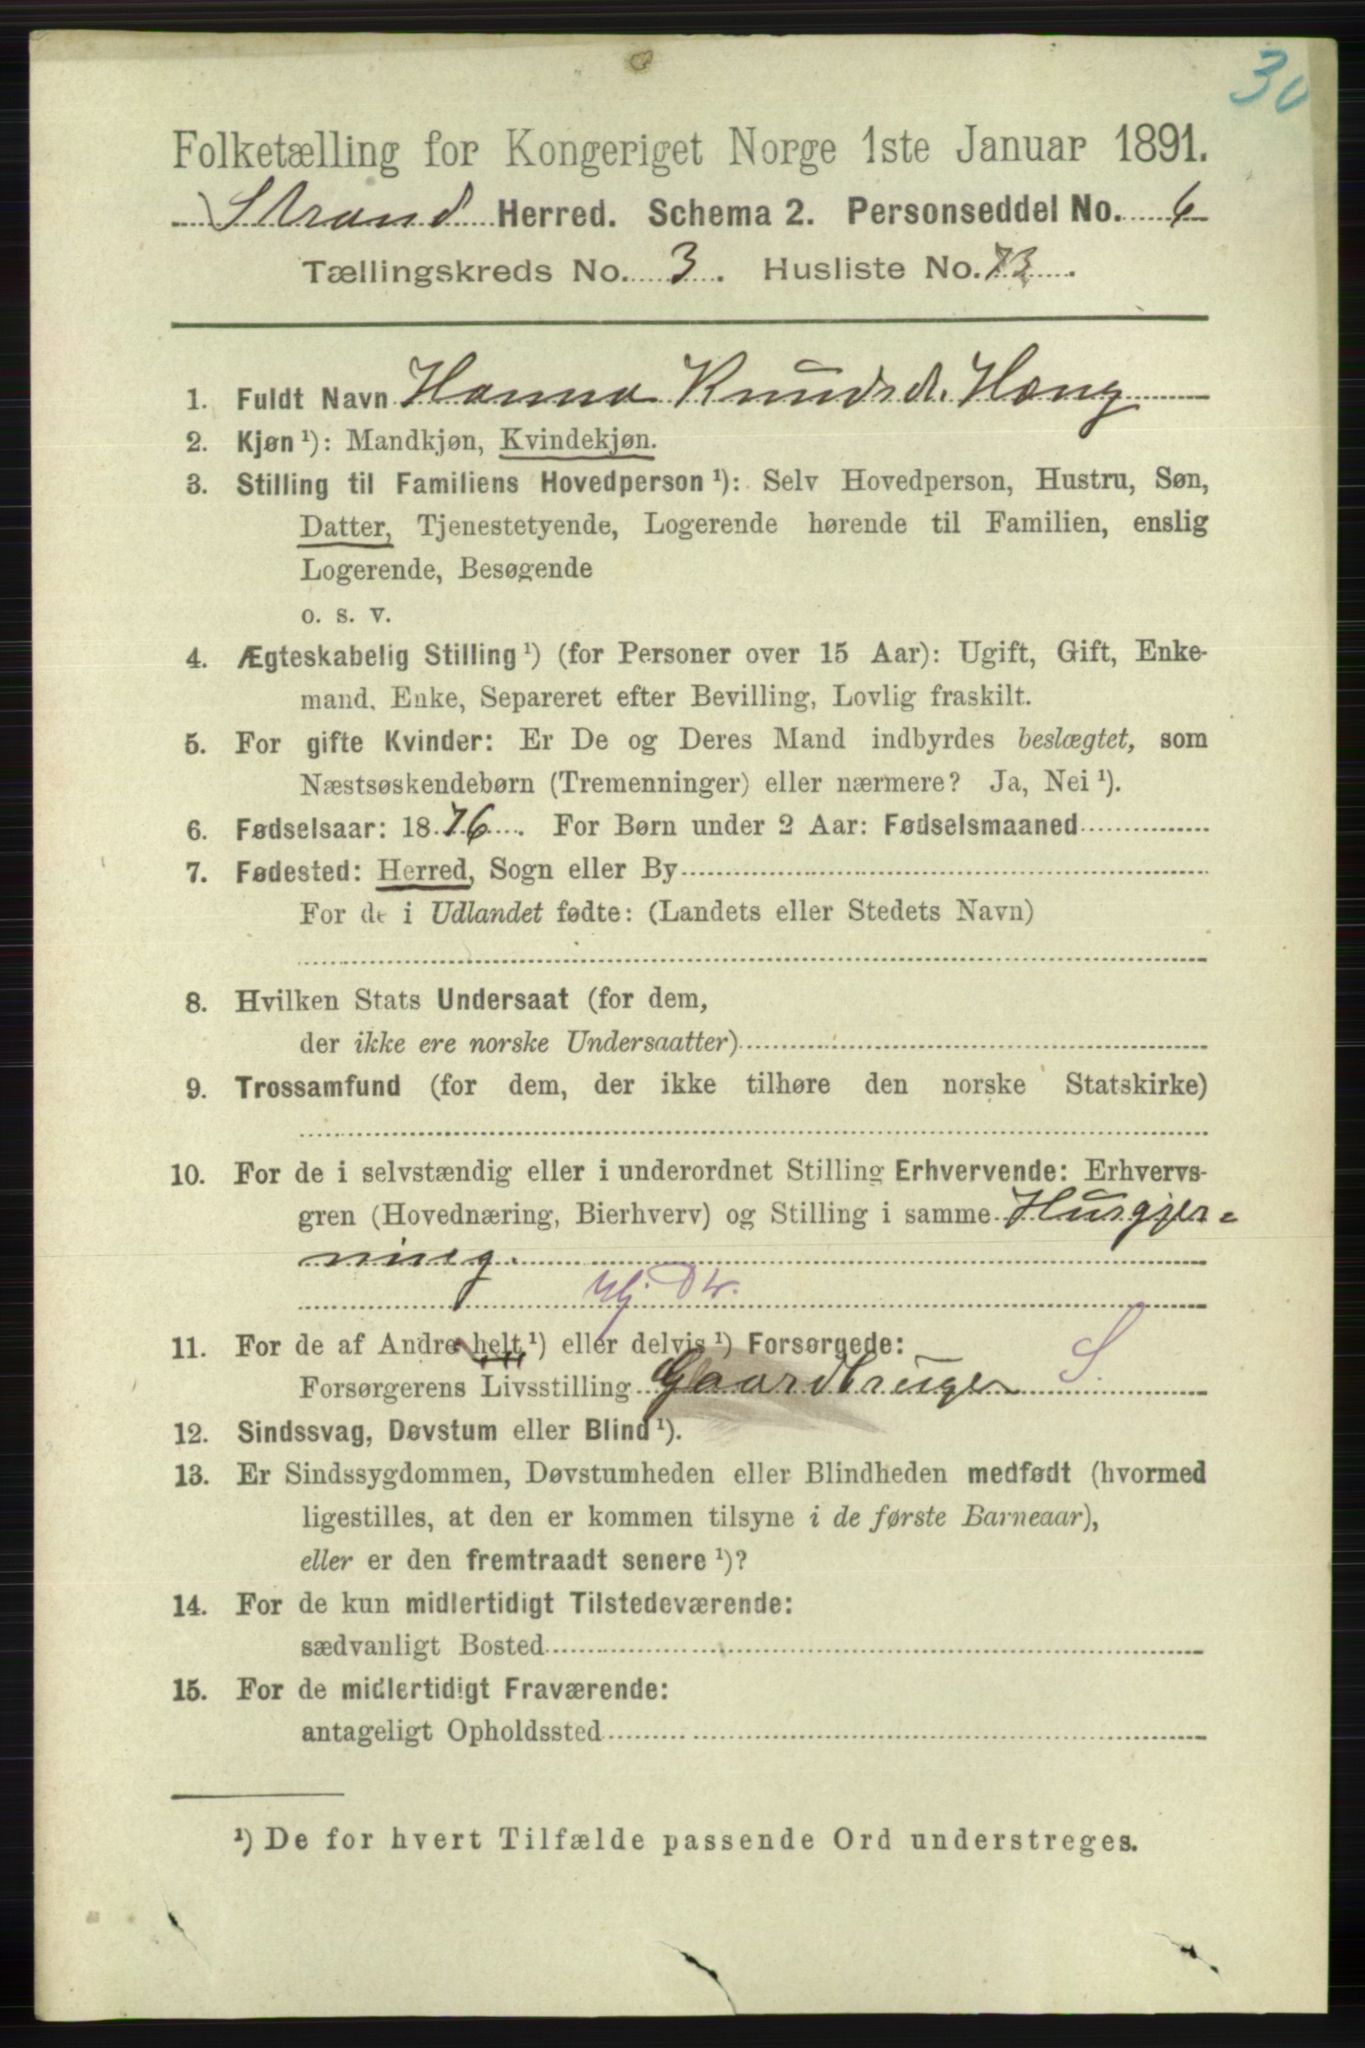 30
Folketælling for Kongeriget Norge 1ste Januar 1891.
Strand Herred. Schema 2. Personseddel No. 6
Tællingskreds No. 3. Husliste No. 73.
1. Fuldt Navn Hanna Knudsd. Houg
2. Kjøn ¹): Mandkjøn, Kvindekjøn.
3. Stilling til Familiens Hovedperson ¹): Selv Hovedperson, Hustru, Søn,
Datter, Tjenestetyende, Logerende hørende til Familien, enslig
Logerende, Besøgende
o. s. v.
4. Ægteskabelig Stilling ¹) (for Personer over 15 Aar): Ugift, Gift, Enke-
mand, Enke, Separeret efter Bevilling, Lovlig fraskilt.
5. For gifte Kvinder: Er De og Deres Mand indbyrdes beslægtet, som
Næstsøskendebørn (Tremenninger) eller nærmere? Ja, Nei ¹).
6. Fødselsaar: 1876. For Børn under 2 Aar: Fødselsmaaned
7. Fødested: Herred, Sogn eller By
For de i Udlandet fødte: (Landets eller Stedets Navn)
8. Hvilken Stats Undersaat (for dem,
der ikke ere norske Undersaatter)
9. Trossamfund (for dem, der ikke tilhøre den norske Statskirke)
10. For de i selvstændig eller i underordnet Stilling Erhvervende: Erhvervs-
gren (Hovednæring, Bierhverv) og Stilling i samme Husgjer-
ning.
11. For de af Andre helt ¹) eller delvis ¹) Forsørgede:
Forsørgerens Livsstilling Gaardbruger S.
12. Sindssvag, Døvstum eller Blind ¹).
13. Er Sindssygdommen, Døvstumheden eller Blindheden medfødt (hvormed
ligestilles, at den er kommen tilsyne i de første Barneaar),
eller er den fremtraadt senere ¹)?
14. For de kun midlertidigt Tilstedeværende:
sædvanligt Bosted
15. For de midlertidigt Fraværende:
antageligt Opholdssted
¹) De for hvert Tilfælde passende Ord understreges.